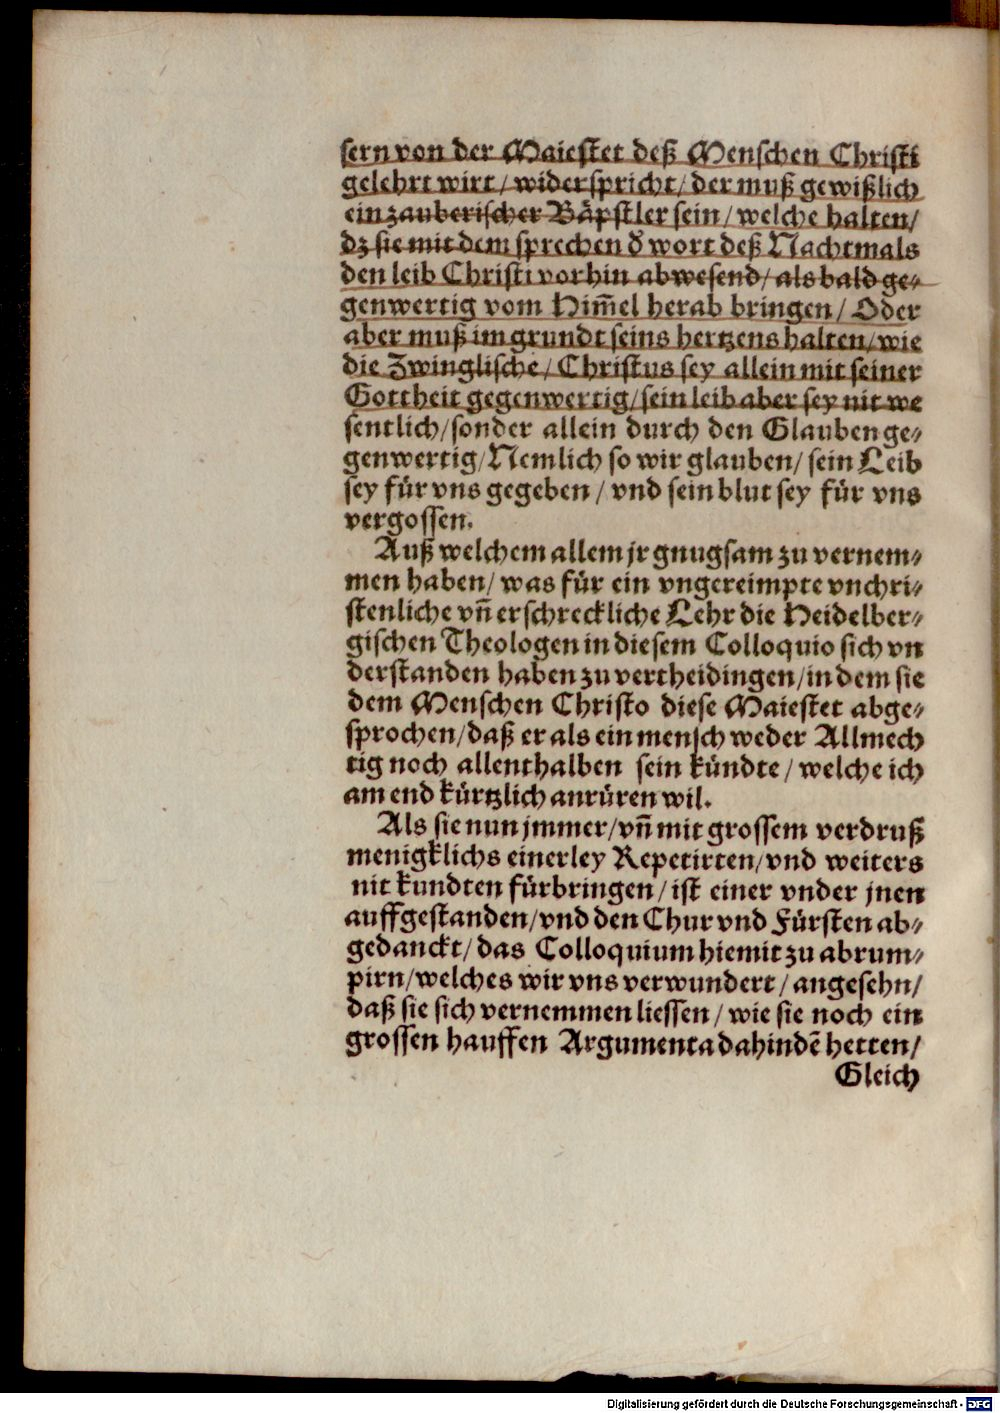 sern von der Maiestet deß Menschen Christi
gelehrt wirt/ widerspricht/ der muß gewißlich
ein zauberischer Bäpstler sein/ welche halten/
dz sie mit dem sprechen d̕ wort deß Nachtmals
den leib Christi vorhin abwesend/ als bald ge⸗
genwertig vom Him̃el herab bringen/ Oder
aber muß im grundt seins hertzens halten/ wie
die Zwinglische/ Christus sey allein mit seiner
Gottheit gegenwertig/ sein leib aber sey nit we
sentlich/ sonder allein durch den Glauben ge⸗
genwertig/ Nemlich so wir glauben/ sein Leib
sey für vns gegeben/ vnd sein blut sey für vns
vergossen.
Auß welchem allem jr gnugsam zu vernem⸗
men haben/ was für ein vngereimpte vnchri⸗
stenliche vñ erschreckliche Lehr die Heidelber⸗
gischen Theologen in diesem Colloquio sich vn
derstanden haben zu vertheidingen/ in dem sie
dem Menschen Christo diese Maiestet abge⸗
sprochen/ daß er als ein mensch weder Allmech
tig noch allenthalben sein kündte/ welche ich
am end kürtzlich anrüren wil.
Als sie nun jmmer/ vñ mit grossem verdruß
menigklichs einerley Repetirten/ vnd weiters
nit kundten fürbringen/ ist einer vnder jnen
auffgestanden/ vnd den Chur vnd Fürsten ab⸗
gedanckt/ das Colloquium hiemit zu abrum⸗
pirn/ welches wir vns verwundert/ angesehn/
daß sie sich vernemmen liessen/ wie sie noch ein
grossen hauffen Argumenta dahindẽ hetten/
Gleich
Digitalisierung gefördert durch die Deutsche Forschungsgemeinschaft - DFG